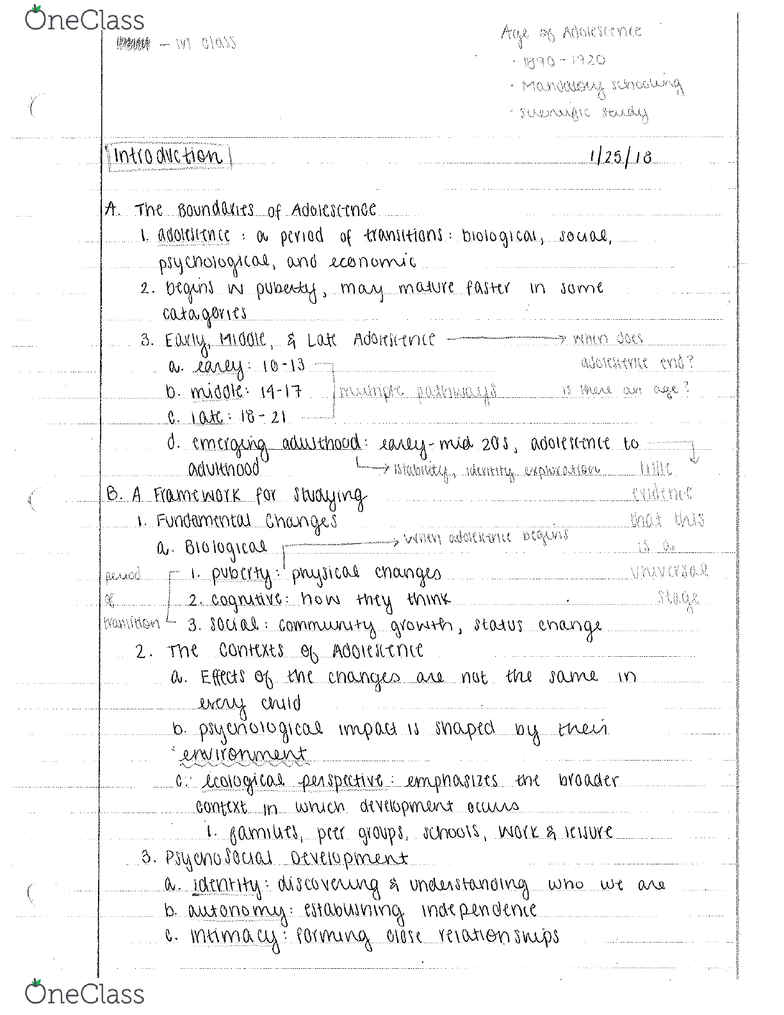 OneClass
- in class
Age of Adolescence
· 1890-1920
· Mandatory schooling
· scientific study
Introduction
1/25/18
A. The Boundaries of Adolescence
1. adolescence: a period of transitions: biological, social,
psychological, and economic
2. begins in puberty, may mature faster in some
catagories
3. Early, Middle, & Late Adolescence → when does
a. early: 10-13 adolescence end?
b. middle: 14-17 multiple pathways is there an age?
c. late: 18-21
d. emerging adulthood: early-mid 20s, adolescence to
adulthood → stability, identity exploration little
B. A Framework for Studying evidence
1. Fundamental Changes that this
a. Biological → when adolescence begins is a
period 1. puberty: physical changes universal
of 2. cognitive: how they think stage
transition 3. social: community growth, status change
2. The Contexts of Adolescence
a. Effects of the changes are not the same in
every child
b. psychological impact is shaped by their
environment
c. ecological perspective: emphasizes the broader
context in which development occurs
i. families, peer groups, schools, work & leisure
3. Psychosocial Development
a. identity: discovering & understanding who we are
b. autonomy: establishing independence
c. intimacy: forming close relationships
OneClass